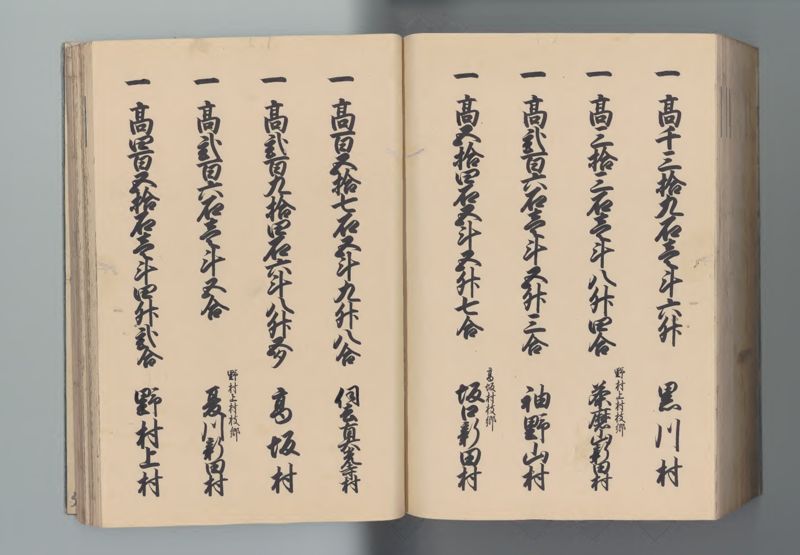 一 高千三拾九石壱斗六升 黒川村
一 高三拾三石壱斗八升四合 野村上村枝郷 薬磨山新田村
一 高弐百六石壱斗五升三合 袖野山村
一 高五拾四石五斗五升七合 高坂村枝郷 坂口新田村
一 高百五拾七石五斗九升八合 村
一 高弐百九拾四石六斗八升 高坂村
一 高弐百六石壱斗五合 野村上村枝郷 夏川新田村
一 高四百五拾石壱斗四升弐合 野村上村